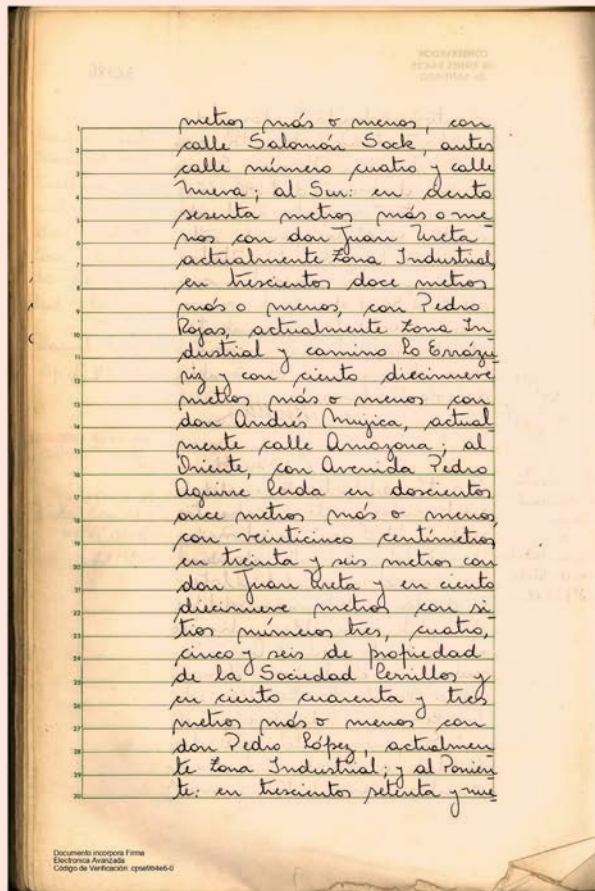 CONSERVADOR
DE BIENES RAICES
DE SANTIAGO
metros más o menos, con
1
calle Salomón Sack, antes
2
calle número cuatro y calle
3
Nueva; al Sur: en ciento
4
sesenta metros más o me
5
nos con don Juan Ureta
6
actualmente Zona Industrial,
7
en trescientos doce metros
8
más o menos, con Pedro
9
Rojas, actualmente Zona In
10
dustrial y camino Lo Errázu
11
riz y con ciento diecinueve
12
metros más o menos con
13
don Andrés Mujica, actual
14
mente calle Amazona; al
15
Oriente, con Avenida Pedro
16
Aguirre Cerda en doscientos
17
once metros más o menos,
18
con veinticinco centímetros
19
en treinta y seis metros con
20
don Juan Ureta y en ciento
21
diecinueve metros con si
22
tios números tres, cuatro,
23
cinco y seis de propiedad
24
de la Sociedad Cerrillos y
25
en ciento cuarenta y tres
26
metros más o menos con
27
don Pedro López, actualmen
28
te Zona Industrial; y al Ponien
29
te: en trescientos setenta y nue
30
Documento incorpora Firma
Electronica Avanzada
Código de Verificación: cpse9b4e6-0